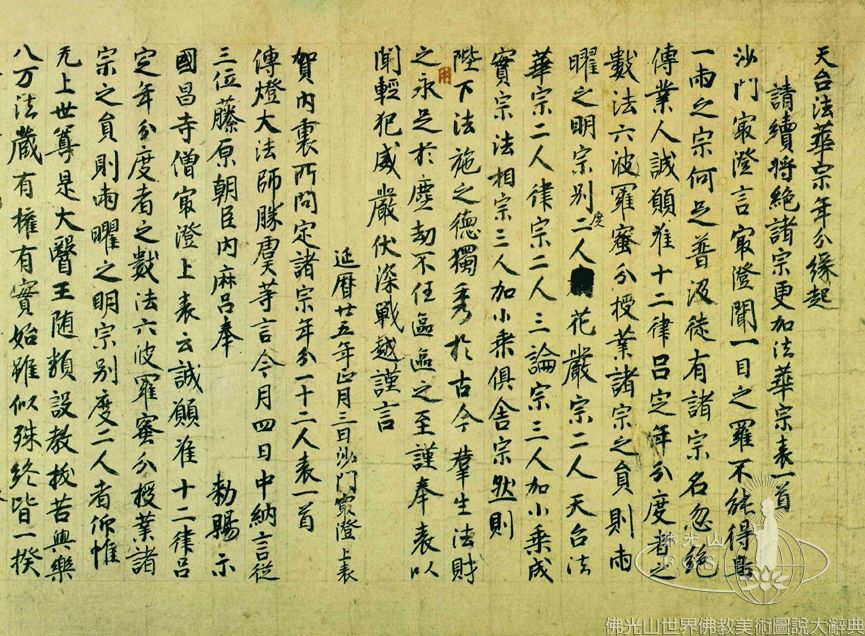 天台法華宗年分緣起
請續將絕諸宗更加法華宗表一首
沙門寂澄言寂澄聞一目之羅不能得鳥
一兩之宗何足普汲徒有諸宗名忽絕
傳業人誠願准十二律呂定年分度者之
數法六波羅蜜分授業諸宗之員則兩
曜之明宗別度二人花嚴宗二人天台法
華宗二人律宗二人三論宗三人加小乘成
實宗法相宗三人加小乘俱舍宗然則
陛下法施之德獨秀於古今羣生法財
之永足於塵劫不任區區之至謹奉表以
聞輕犯威嚴伏深戰越謹言
延曆廿五年正月三日沙門寂澄上表
賀內裏所問定諸宗年分一十二人表一首
傳燈大法師勝虞等言今月四日中納言從
三位藤原朝臣內麻呂奉 勅賜示
國昌寺僧寂澄上表云誠願准十二律呂
定年分度者之數法六波羅蜜分授業諸
宗之員則兩曜之明宗別度二人者仰惟
无上世尊是大醫王隨類設教拔苦與樂
八万法藏有權有實始雖似殊終皆一揆
佛光山
佛光山世界佛教美術圖說大辭典